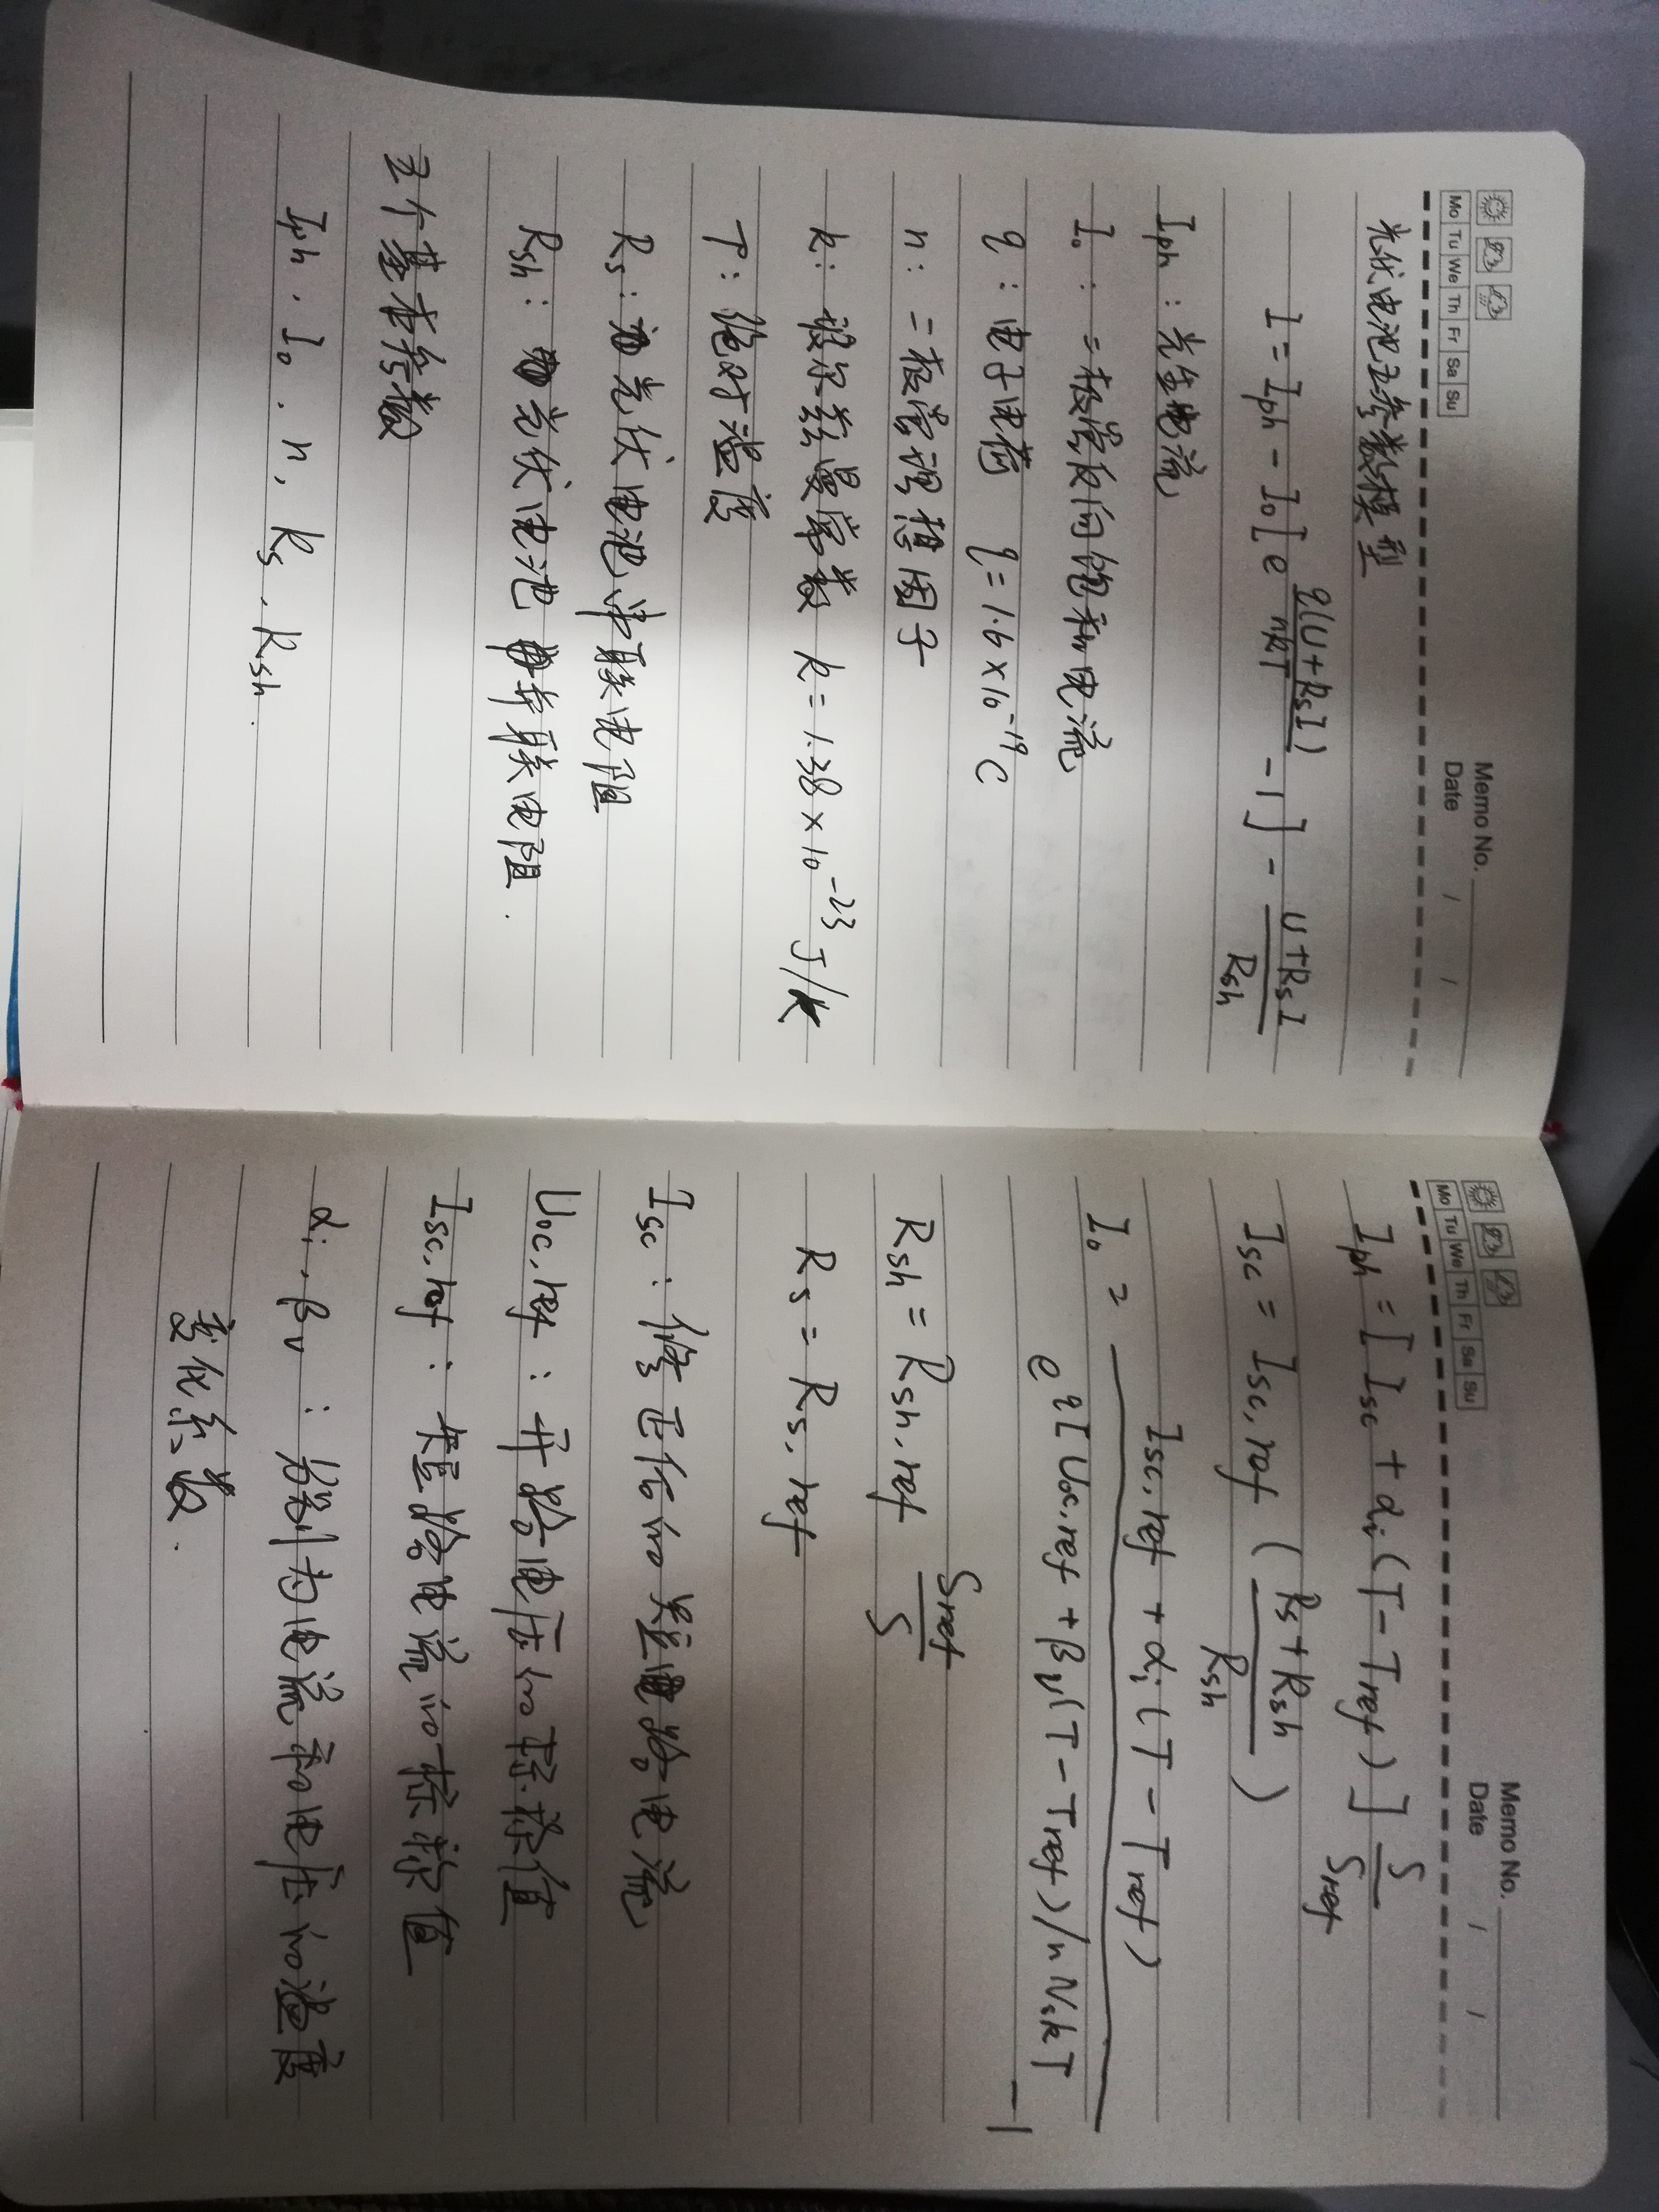 Memo No.
Mo Tu We Th Fr Sa Su
Date / /
光伏电池五参数模型
I = Iph - I₀[e^(q(U+RsI)/nkT) - 1] - (U+RsI)/Rsh
Iph：光生电流
I₀：二极管反向饱和电流
q：电子电荷 q=1.6×10⁻¹⁹C
n：二极管理想因子
k：玻尔兹曼常数 k=1.38×10⁻²³J/k
T：绝对温度
Rs：光伏电池串联电阻
Rsh：光伏电池并联电阻.
五个基本参数
Iph、I₀、n、Rs、Rsh.
Memo No.
Mo Tu We Th Fr Sa Su
Date / /
Iph = [Isc + αi(T-Tref)] S/Sref
Isc = Isc,ref ((Rs+Rsh)/Rsh)
I₀ = (Isc,ref + αi(T-Tref)) / (e^(q[Uoc,ref+βv(T-Tref)/nNskT) - 1)
Rsh = Rsh,ref Sref/S
Rs = Rs,ref
Isc：修正后的短路电流
Uoc,ref：开路电压的标称值
Isc,ref：短路电流的标称值
αi、βv：分别为电流和电压的温度
变化系数.